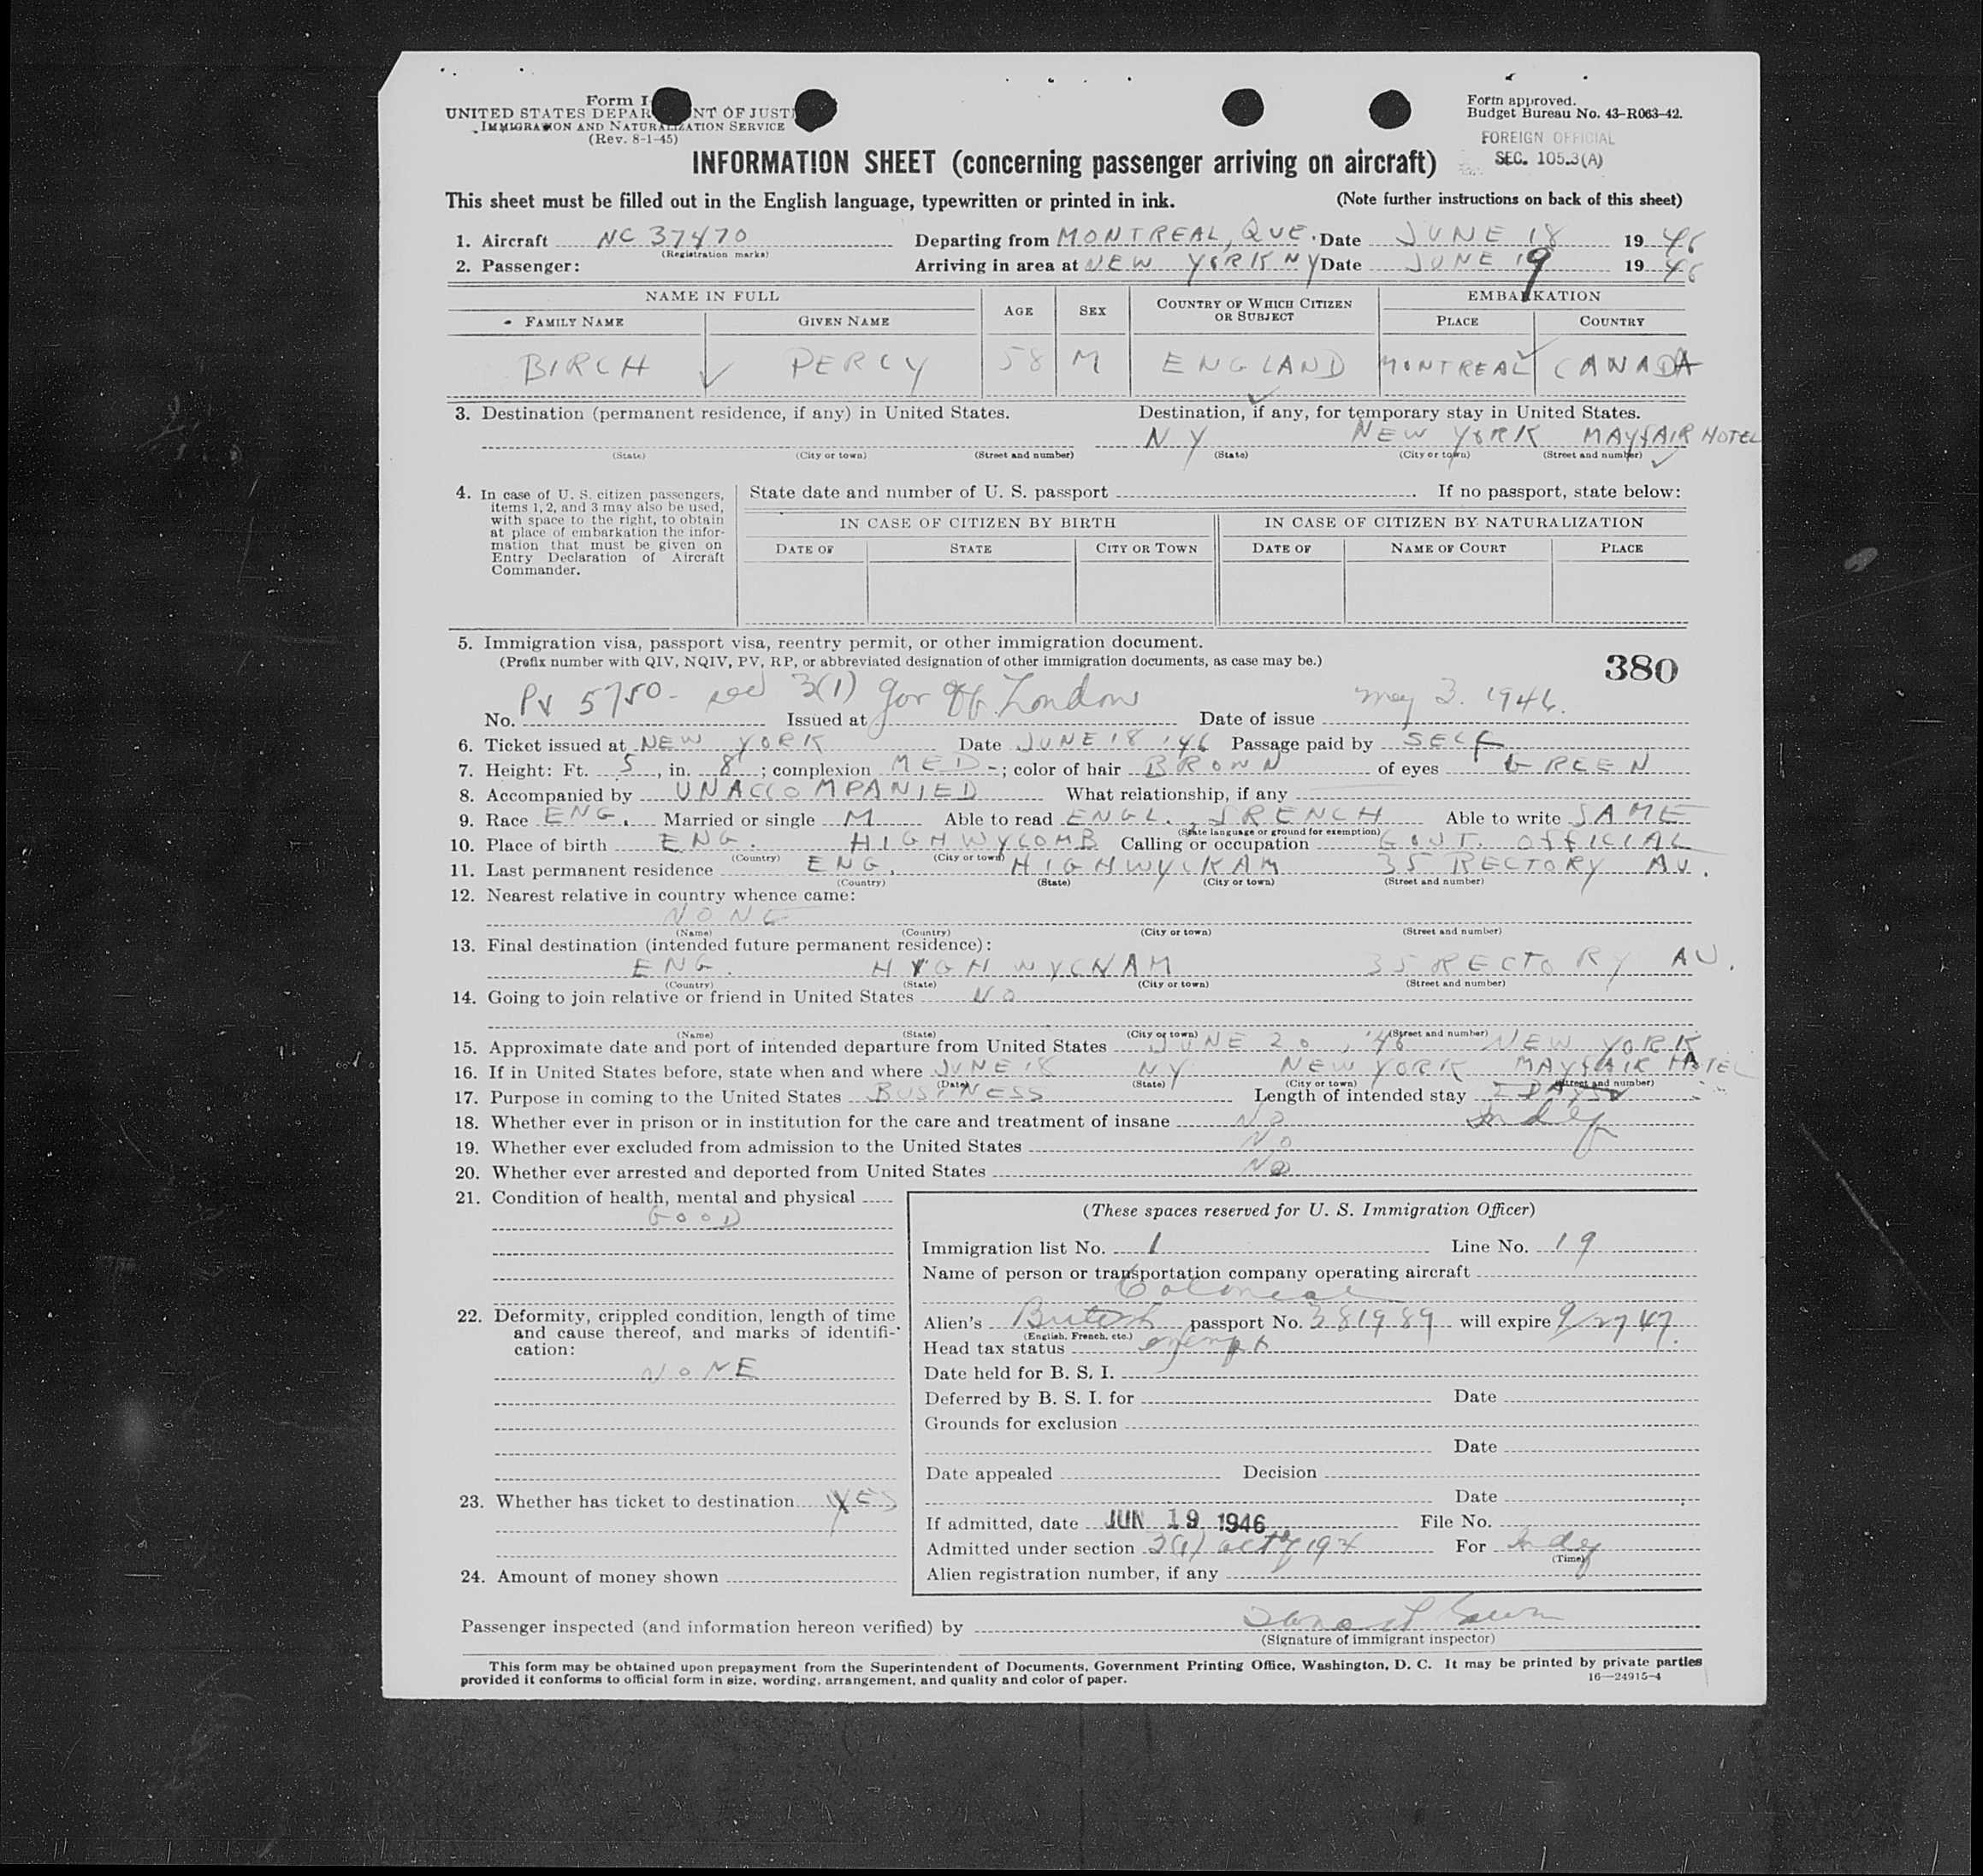 Form I
UNITED STATES DEPAR NT OF JUST
IMMIGRATION AND NATURALIZATION SERVICE
(Rev. 8-1-45)
Form approved.
Budget Bureau No. 43-R063-42.
FOREIGN OFFICIAL
SEC. 105.3(A)
INFORMATION SHEET (concerning passenger arriving on aircraft)
This sheet must be filled out in the English language, typewritten or printed in ink. (Note further instructions on back of this sheet)
1. Aircraft NC 37470 Departing from MONTREAL, QUE. Date JUNE 18 1946
(Registration marks)
2. Passenger: Arriving in area at NEW YORK NY Date JUNE 19 1946
NAME IN FULL AGE SEX COUNTRY OF WHICH CITIZEN OR SUBJECT EMBARKATION
FAMILY NAME GIVEN NAME PLACE COUNTRY
BIRCH PERCY 58 M ENGLAND MONTREAL CANADA
3. Destination (permanent residence, if any) in United States. Destination, if any, for temporary stay in United States.
NY NEW YORK MAYFAIR HOTEL
(State) (City or town) (Street and number) (State) (City or town) (Street and number)
4. In case of U. S. citizen passengers, items 1, 2, and 3 may also be used, with space to the right, to obtain at place of embarkation the information that must be given on Entry Declaration of Aircraft Commander.
State date and number of U. S. passport . If no passport, state below:
IN CASE OF CITIZEN BY BIRTH IN CASE OF CITIZEN BY NATURALIZATION
DATE OF STATE CITY OR TOWN DATE OF NAME OF COURT PLACE
5. Immigration visa, passport visa, reentry permit, or other immigration document.
(Prefix number with QIV, NQIV, PV, RP, or abbreviated designation of other immigration documents, as case may be.)
380
No. PV 5750 - 3(1) gov off London Issued at Date of issue may 3. 1946.
6. Ticket issued at NEW YORK Date JUNE 18 '46 Passage paid by SELF
7. Height: Ft. 5, in. 8; complexion MED-; color of hair BROWN of eyes GREEN
8. Accompanied by UNACCOMPANIED What relationship, if any
9. Race ENG. Married or single M Able to read ENGL., FRENCH Able to write SAME
(State language or ground for exemption)
10. Place of birth ENG. HIGHWYCOMB Calling or occupation GOVT. OFFICIAL
(Country) (City or town)
11. Last permanent residence ENG. HIGHWYCKAM 35 RECTORY AV.
(Country) (State) (City or town) (Street and number)
12. Nearest relative in country whence came:
NONE
(Name) (Country) (City or town) (Street and number)
13. Final destination (intended future permanent residence):
ENG. HYGHWYCNAM 35 RECTORY AV.
(Country) (State) (City or town) (Street and number)
14. Going to join relative or friend in United States NO
(Name) (State) (City or town) (Street and number)
15. Approximate date and port of intended departure from United States JUNE 20, '46 NEW YORK
16. If in United States before, state when and where JUNE 18 NY NEW YORK MAYFAIR HOTEL
(Date) (State) (City or town) (Street and number)
17. Purpose in coming to the United States BUSINESS Length of intended stay 2 DAYS
Indef
18. Whether ever in prison or in institution for the care and treatment of insane NO
19. Whether ever excluded from admission to the United States NO
20. Whether ever arrested and deported from United States NO
21. Condition of health, mental and physical
GOOD
22. Deformity, crippled condition, length of time and cause thereof, and marks of identification:
NONE
23. Whether has ticket to destination YES
24. Amount of money shown
(These spaces reserved for U. S. Immigration Officer)
Immigration list No. 1 Line No. 19
Name of person or transportation company operating aircraft
Colonial
Alien's British passport No. 381989 will expire 9/27/47.
(English, French, etc.)
Head tax status exempt
Date held for B. S. I.
Deferred by B. S. I. for Date
Grounds for exclusion
Date
Date appealed Decision
Date
If admitted, date JUN 19 1946 File No.
Admitted under section 3(1) act of 1924 For Indef
(Time)
Alien registration number, if any
Passenger inspected (and information hereon verified) by
(Signature of immigrant inspector)
This form may be obtained upon prepayment from the Superintendent of Documents, Government Printing Office, Washington, D. C. It may be printed by private parties
provided it conforms to official form in size, wording, arrangement, and quality and color of paper. 16—24915-4